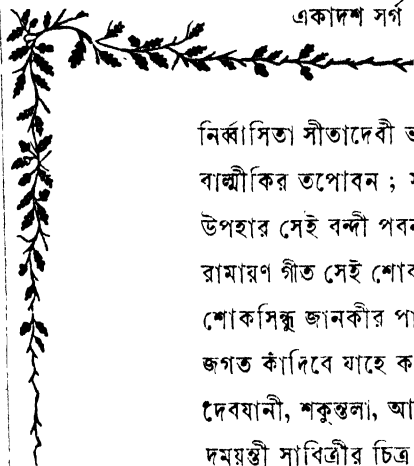 একাদশ সর্গ
নির্ব্বাসিতা সীতাদেবী
বাল্মীকির তপোবন ;
উপহার সেই বন্দী
রামায়ণ গীত সেই
শোকসিন্ধু জানকীর
জগত কাঁদিবে যাহে
দেবযানী, শকুন্তলা,
দময়ন্তী সাবিত্রীর চিত্র